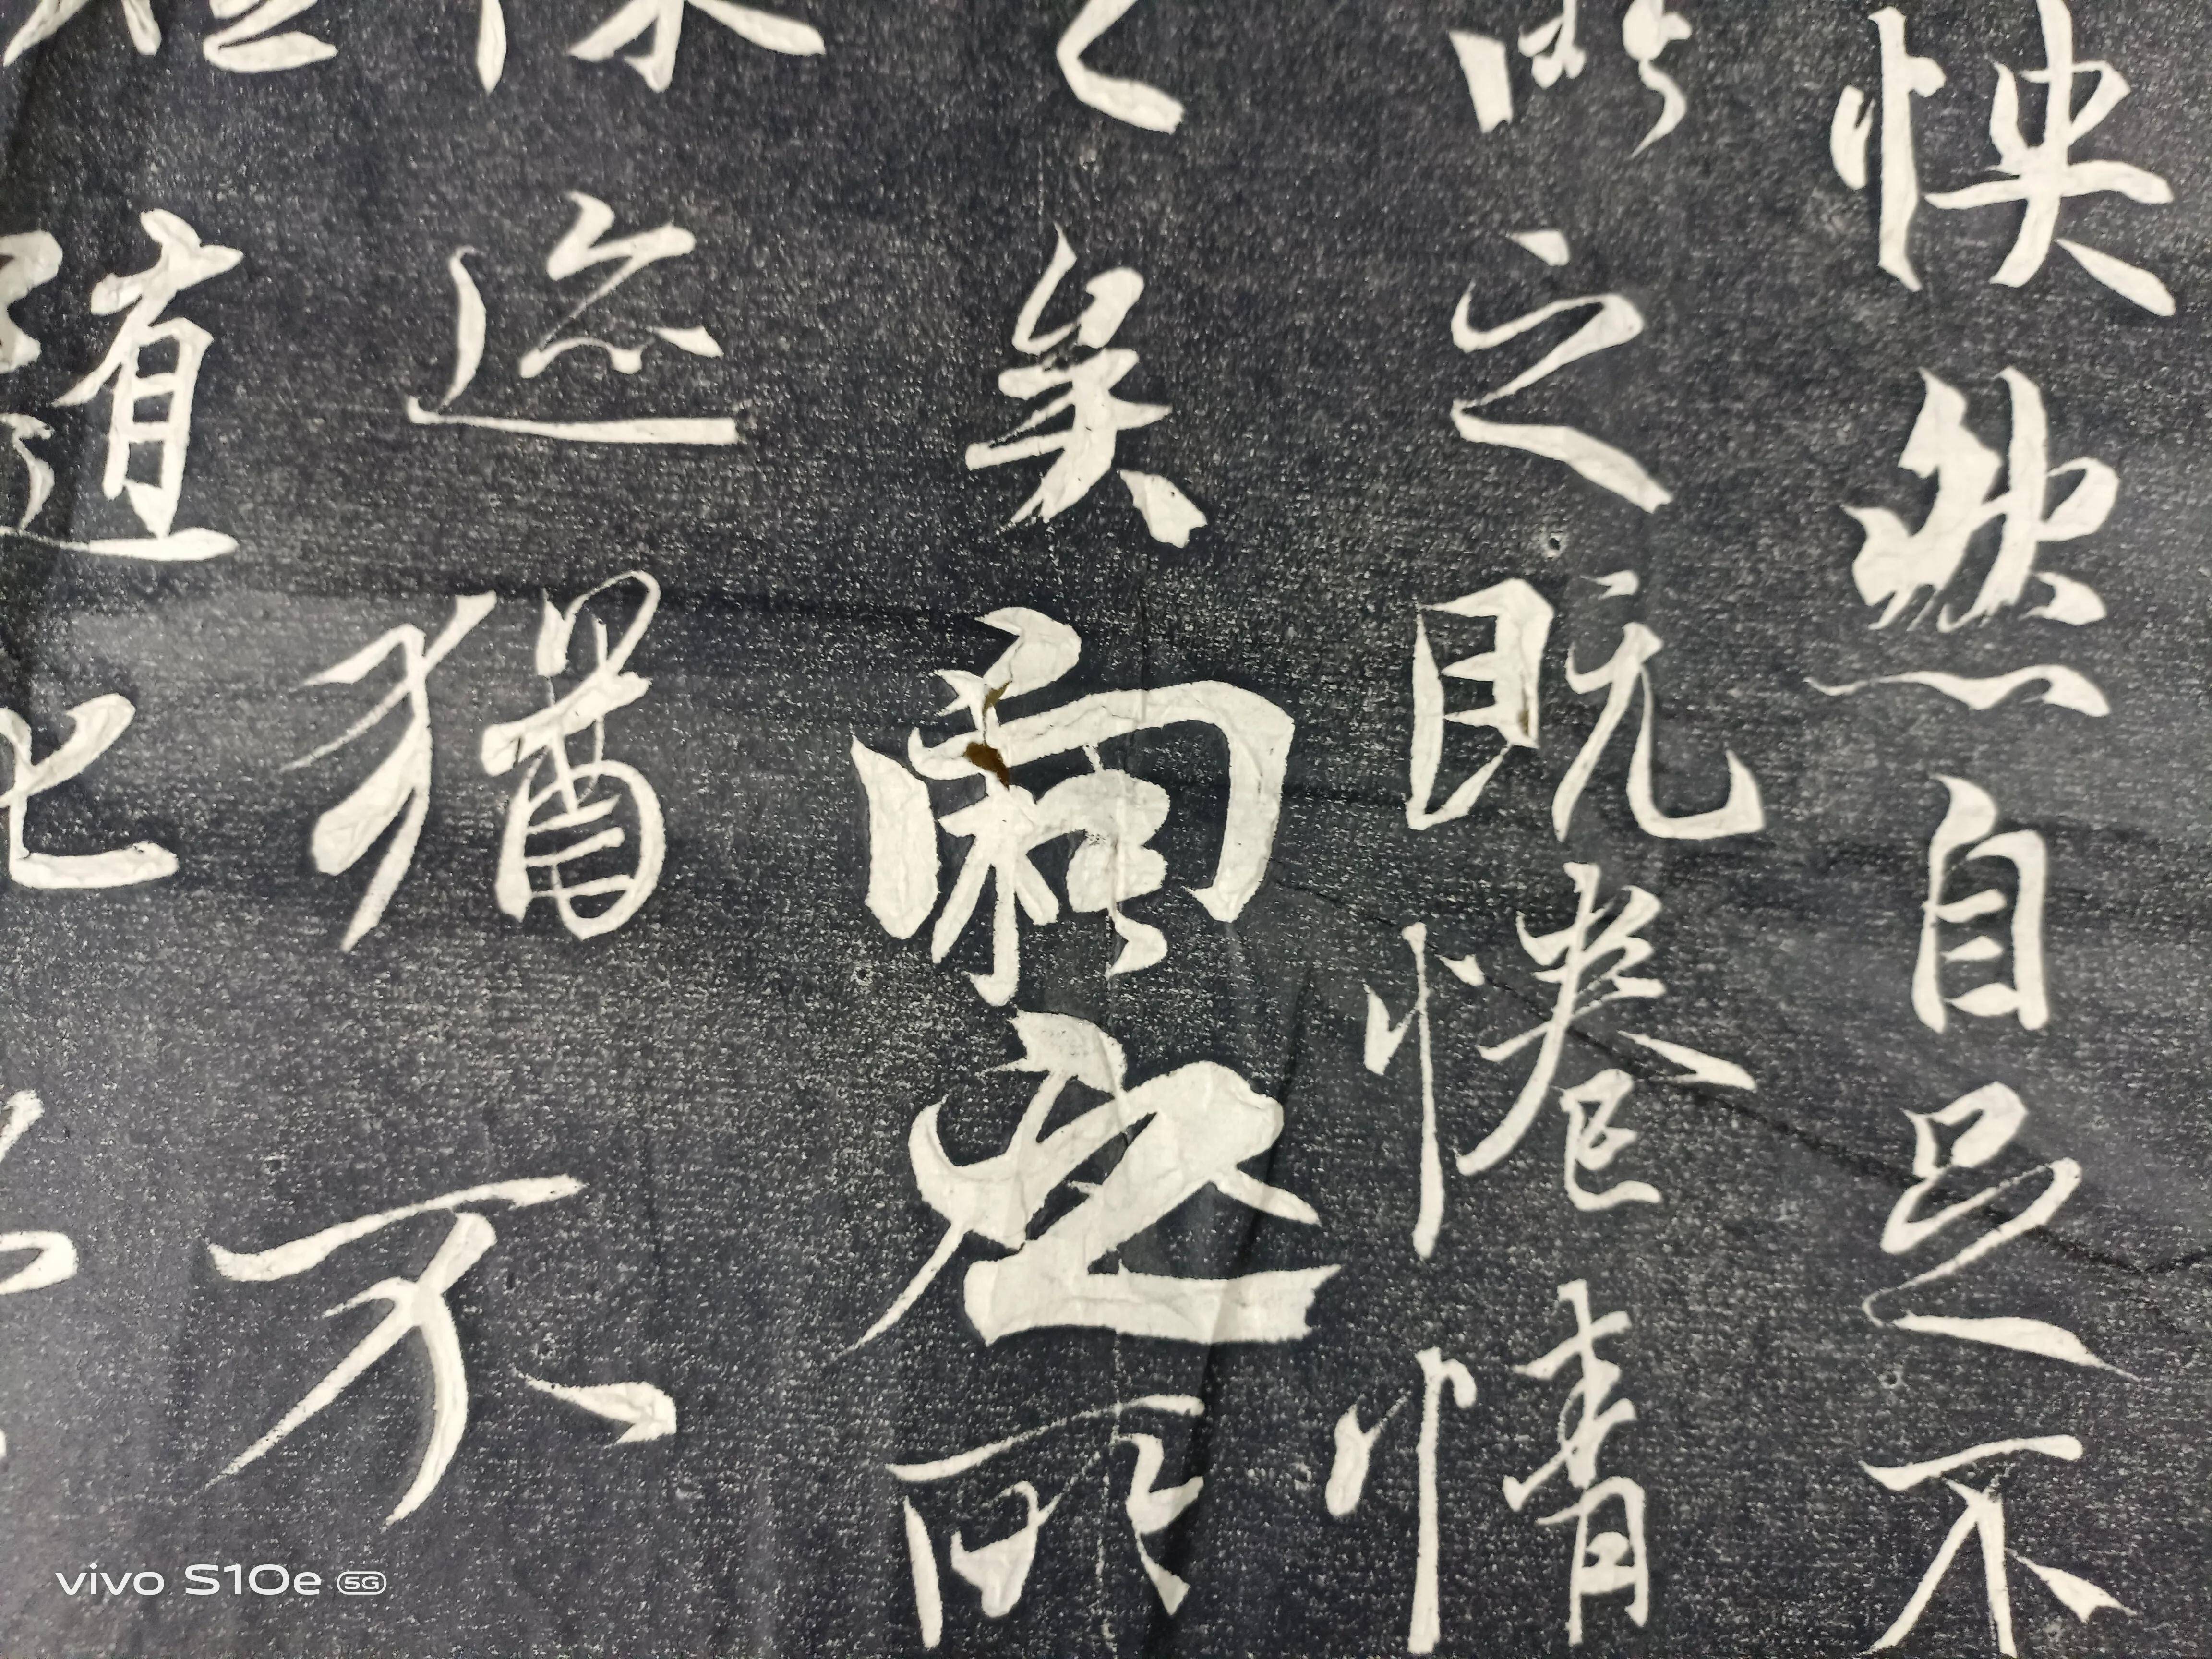 怏然自足不
所之既惓情
之矣向之所
迹猶不
隨化
vivo S10e 5G